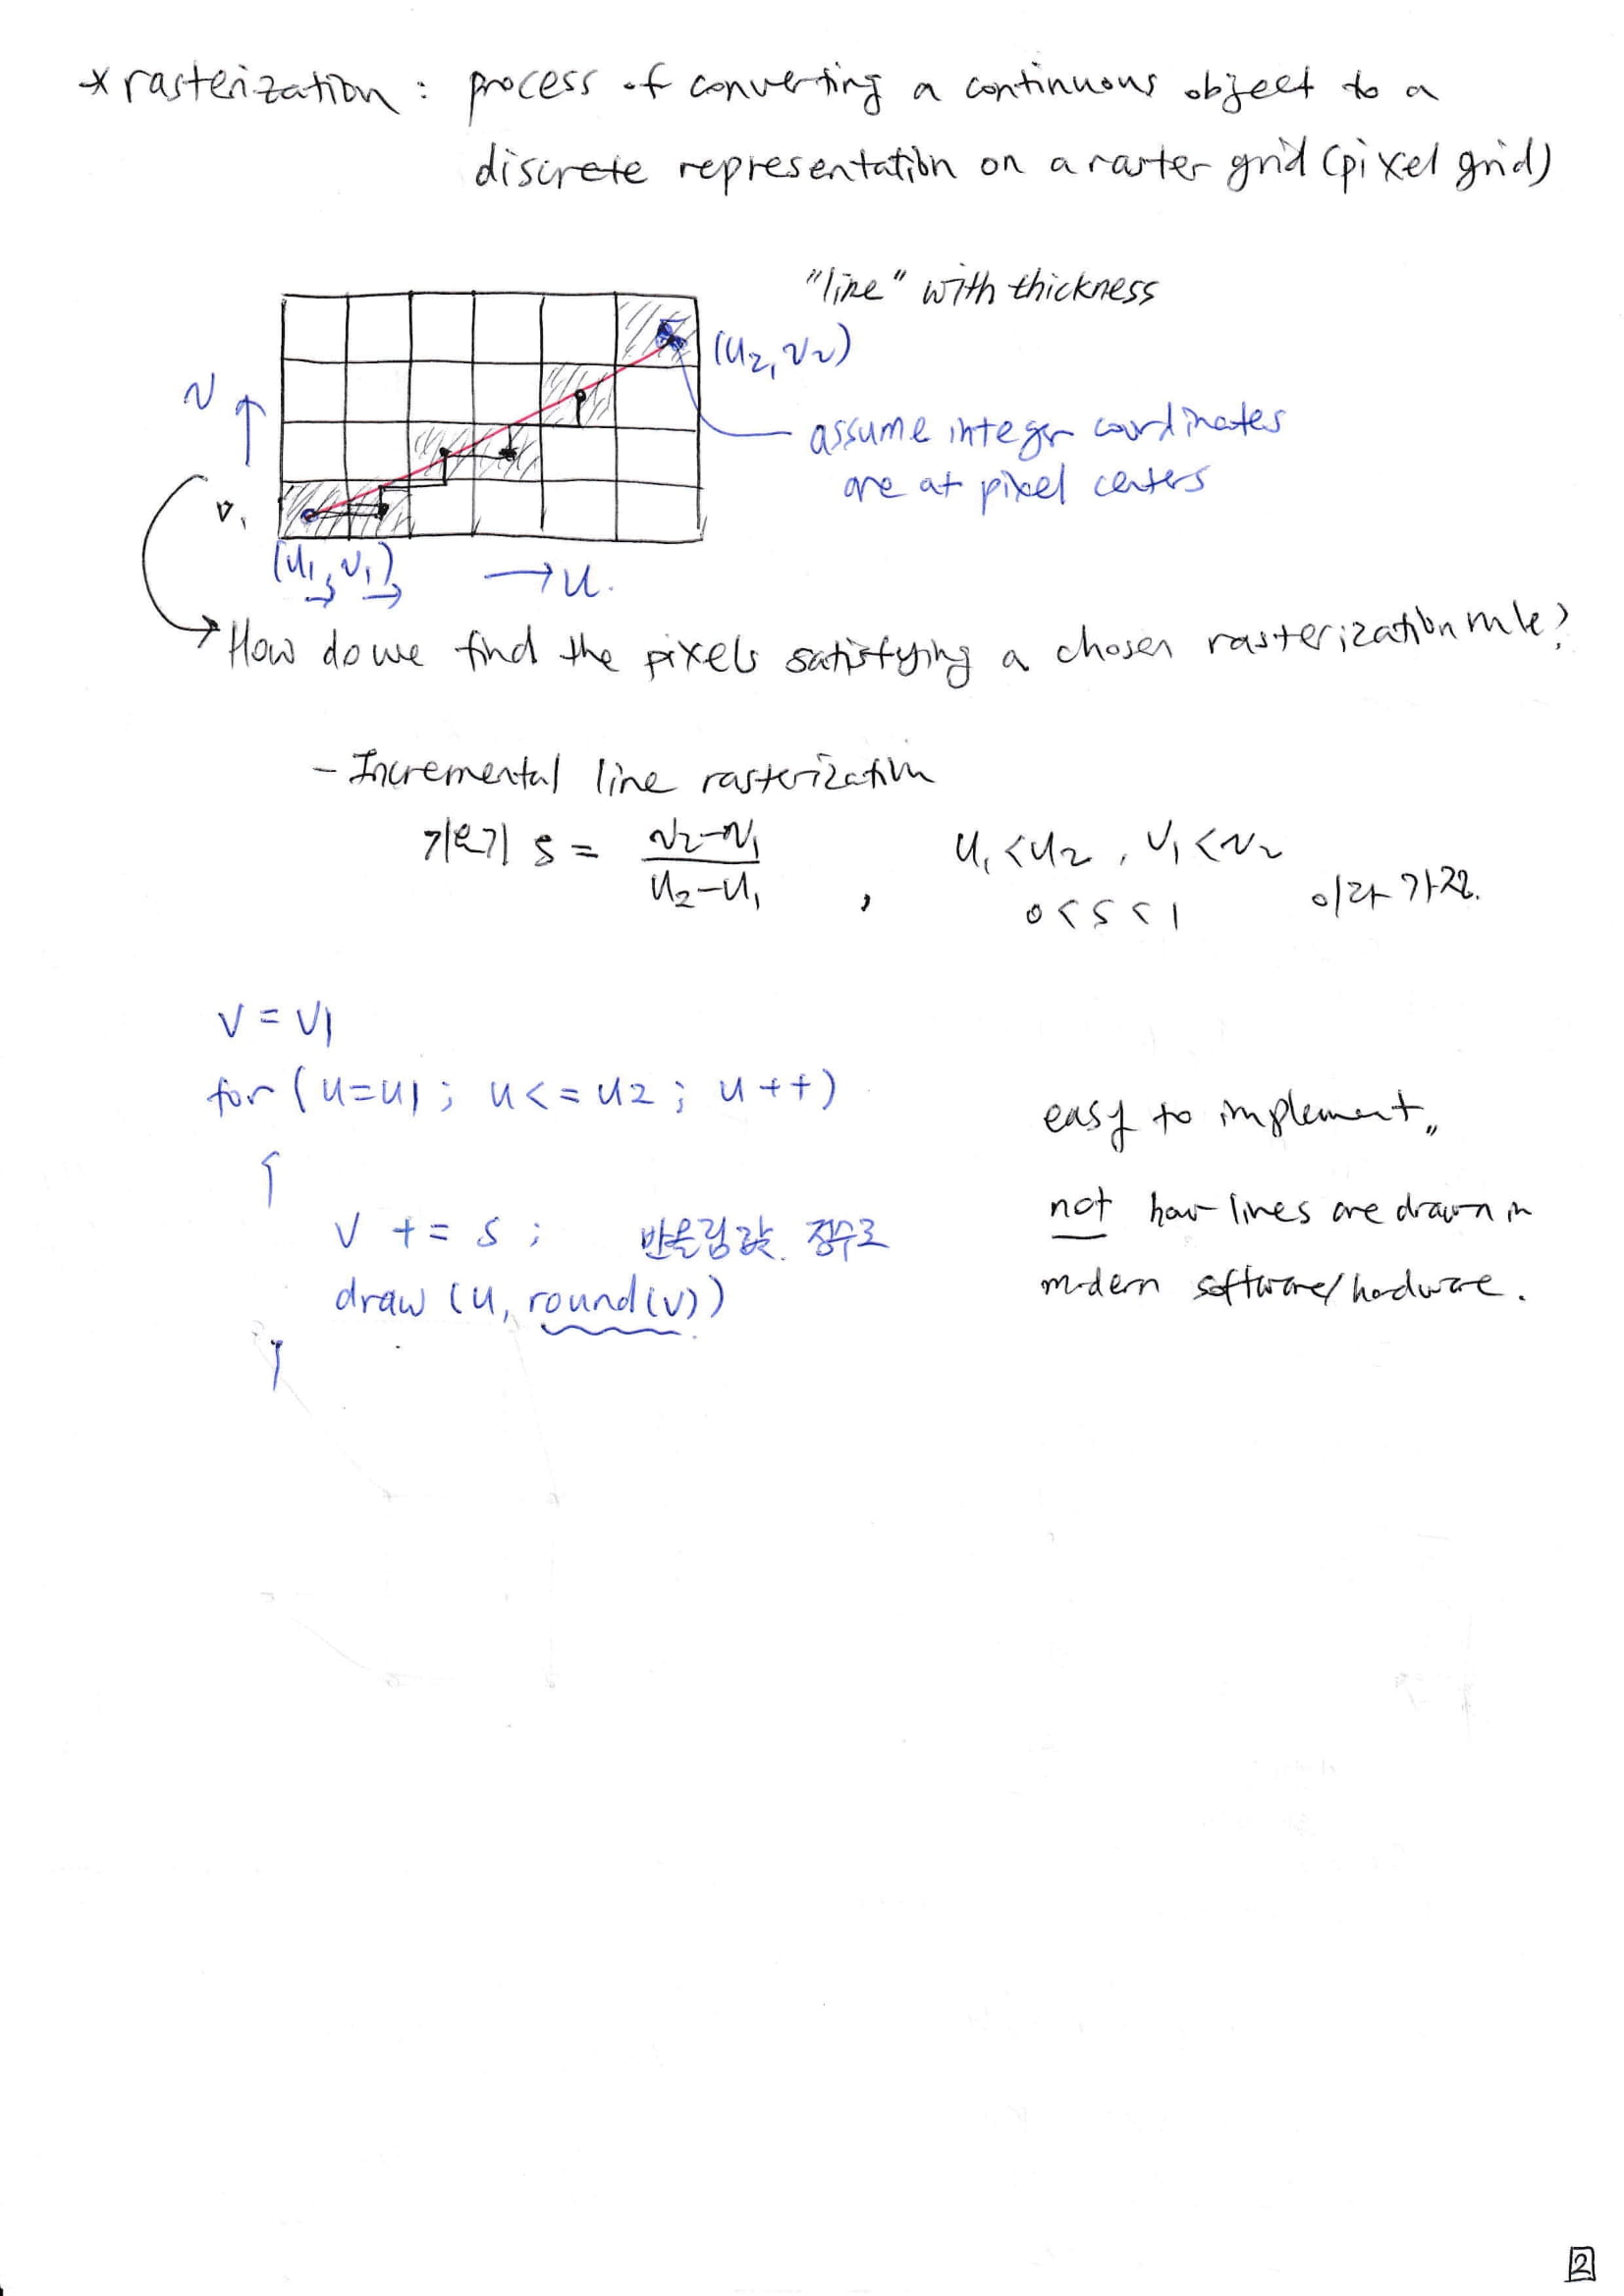 * rasterization : process of converting a continuous object to a
discrete representation on a raster grid (pixel grid)
"line" with thickness
(u₂, v₂)
v
assume integer coordinates
are at pixel centers
v₁
(u₁, v₁)
→ u.
→ How do we find the pixels satisfying a chosen rasterization rule?
- Incremental line rasterization
기울기 s = (v₂-v₁)/(u₂-u₁) , u₁<u₂ , v₁<v₂
0 < s < 1 이라 가정.
v = v1
for ( u=u1 ; u<=u2 ; u++)
easy to implement,,
{
v += s ; 반올림값. 정수로
not how lines are drawn in
draw (u, round(v))
modern software/hardware.
}
2